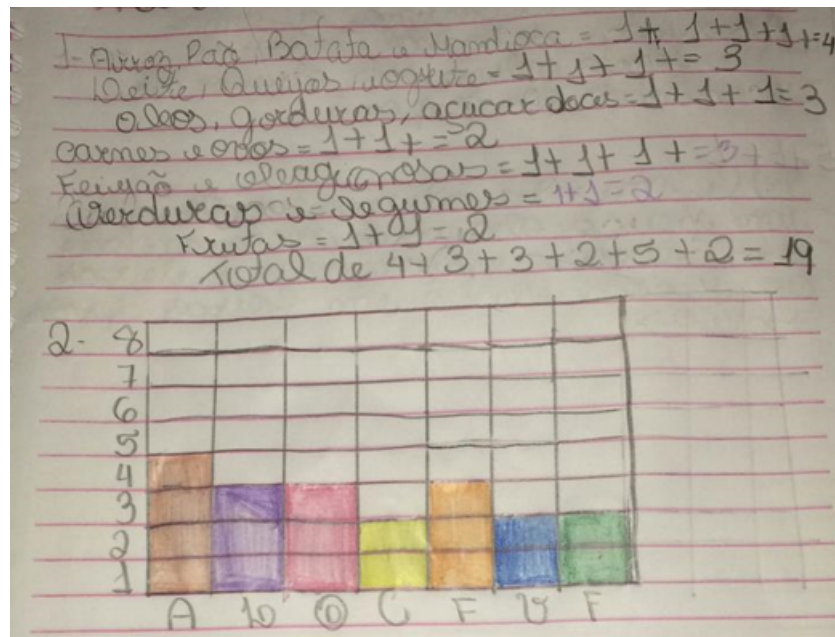 1- Arroz, Pão, Batata e Mandioca = 1+ 1+1+1+=4
Leite, Queijos, iogurte = 1+1+1+= 3
oleos, gorduras, açucar doces = 1+1+1=3
carnes e ovos = 1+1+= 2
Feijão e oleaginosas = 1+1+1+=3
Verduras e legumes = 1+1=2
Frutas = 1+1=2
Total de 4+3+3+2+5+2=19
2- 8
7
6
5
4
3
2
1
A L O C F V F